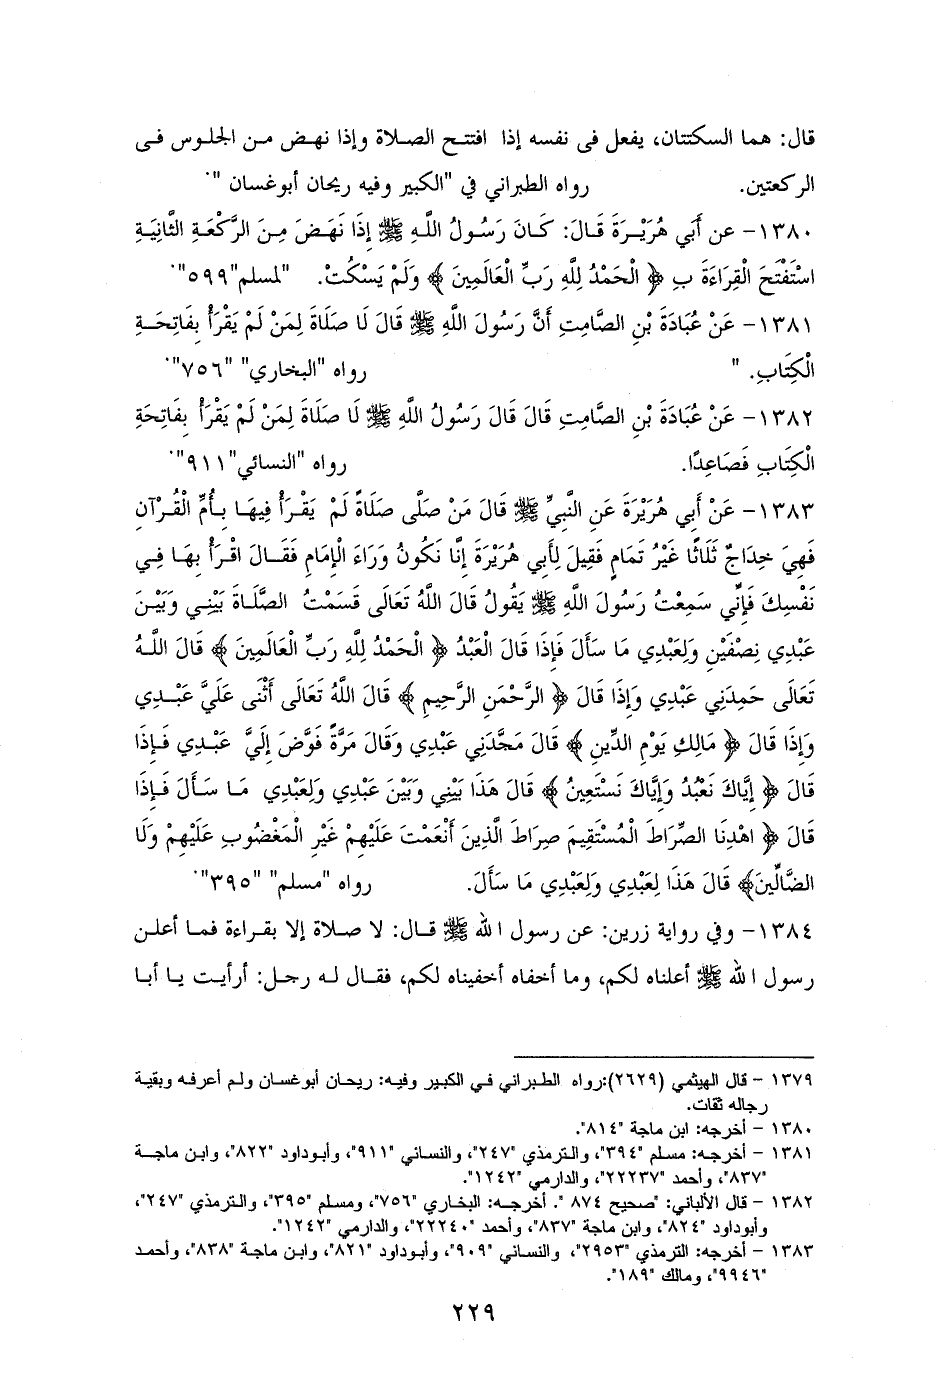 قال: هما السكتتان، يفعل فى نفسه إذا افتتح الصلاة وإذا نهض من الجلوس فى
الركعتين. رواه الطبراني في "الكبير وفيه ريحان أبوغسان ".
١٣٨٠- عن أَبي هُرَيْرَةَ قَالَ: كَانَ رَسُولُ اللهِ ﷺ إِذَا نَهَضَ مِنَ الرَّكْعَةِ الثَّانِيَةِ
اسْتَفْتَحَ الْقِرَاءَةَ بِ ﴿ الْحَمْدُ لِلَّهِ رَبِّ الْعَالَمِينَ ﴾ وَلَمْ يَسْكُتْ. "لمسلم"٥٩٩".
١٣٨١- عَنْ عُبَادَةَ بْنِ الصَّامِتِ أَنَّ رَسُولَ اللهِ ﷺ قَالَ لَا صَلَاةَ لِمَنْ لَمْ يَقْرَأْ بِفَاتِحَةِ
الْكِتَابِ. " رواه "البخاري" "٧٥٦".
١٣٨٢- عَنْ عُبَادَةَ بْنِ الصَّامِتِ قَالَ قَالَ رَسُولُ اللهِ ﷺ لَا صَلَاةَ لِمَنْ لَمْ يَقْرَأْ بِفَاتِحَةِ
الْكِتَابِ فَصَاعِدًا. رواه "النسائي"٩١١".
١٣٨٣- عَنْ أَبِي هُرَيْرَةَ عَنِ النَّبِيِّ ﷺ قَالَ مَنْ صَلَّى صَلَاةً لَمْ يَقْرَأْ فِيهَا بِأُمِّ الْقُرْآنِ
فَهِيَ خِدَاجٌ ثَلَاثًا غَيْرُ تَمَامٍ فَقِيلَ لِأَبِي هُرَيْرَةَ إِنَّا نَكُونُ وَرَاءَ الْإِمَامِ فَقَالَ اقْرَأْ بِهَا فِي
نَفْسِكَ فَإِنِّي سَمِعْتُ رَسُولَ اللهِ ﷺ يَقُولُ قَالَ اللهُ تَعَالَى قَسَمْتُ الصَّلَاةَ بَيْنِي وَبَيْنَ
عَبْدِي نِصْفَيْنِ وَلِعَبْدِي مَا سَأَلَ فَإِذَا قَالَ الْعَبْدُ ﴿ الْحَمْدُ لِلَّهِ رَبِّ الْعَالَمِينَ ﴾ قَالَ اللهُ
تَعَالَى حَمِدَنِي عَبْدِي وَإِذَا قَالَ ﴿ الرَّحْمَنِ الرَّحِيمِ ﴾ قَالَ اللهُ تَعَالَى أَثْنَى عَلَيَّ عَبْدِي
وَإِذَا قَالَ ﴿ مَالِكِ يَوْمِ الدِّينِ ﴾ قَالَ مَجَّدَنِي عَبْدِي وَقَالَ مَرَّةً فَوَّضَ إِلَيَّ عَبْدِي فَإِذَا
قَالَ ﴿ إِيَّاكَ نَعْبُدُ وَإِيَّاكَ نَسْتَعِينُ ﴾ قَالَ هَذَا بَيْنِي وَبَيْنَ عَبْدِي وَلِعَبْدِي مَا سَأَلَ فَإِذَا
قَالَ ﴿ اهْدِنَا الصِّرَاطَ الْمُسْتَقِيمَ صِرَاطَ الَّذِينَ أَنْعَمْتَ عَلَيْهِمْ غَيْرِ الْمَغْضُوبِ عَلَيْهِمْ وَلَا
الضَّالِّينَ﴾ قَالَ هَذَا لِعَبْدِي وَلِعَبْدِي مَا سَأَلَ. رواه "مسلم" "٣٩٥".
١٣٨٤- وفي رواية زرين: عن رسول الله ﷺ قال: لا صلاة إلا بقراءة فما أعلن
رسول الله ﷺ أعلناه لكم، وما أخفاه أخفيناه لكم، فقال له رجل: أرأيت يا أبا
١٣٧٩ - قال الهيثمي (٢٦٢٩):رواه الطبراني في الكبير وفيه: ريحان أبوغسان ولم أعرفه وبقية
رجاله ثقات.
١٣٨٠ - أخرجه: ابن ماجة "٨١٤".
١٣٨١ - أخرجه: مسلم "٣٩٤"، والترمذي "٢٤٧"، والنسائي "٩١١"، وأبوداود "٨٢٢"، وابن ماجة
"٨٣٧"، وأحمد "٢٢٢٣٧"، والدارمي "١٢٤٢".
١٣٨٢ - قال الألباني: "صحيح ٨٧٤ ". أخرجه: البخاري "٧٥٦"، ومسلم "٣٩٥"، والترمذي "٢٤٧"،
وأبوداود "٨٢٤"، وابن ماجة "٨٣٧"، وأحمد "٢٢٢٤٠"، والدارمي "١٢٤٢".
١٣٨٣ - أخرجه: الترمذي "٢٩٥٣"، والنسائي "٩٠٩"، وأبوداود "٨٢١"، وابن ماجة "٨٣٨"، وأحمد
"٩٩٤٦"، ومالك "١٨٩".
٢٢٩